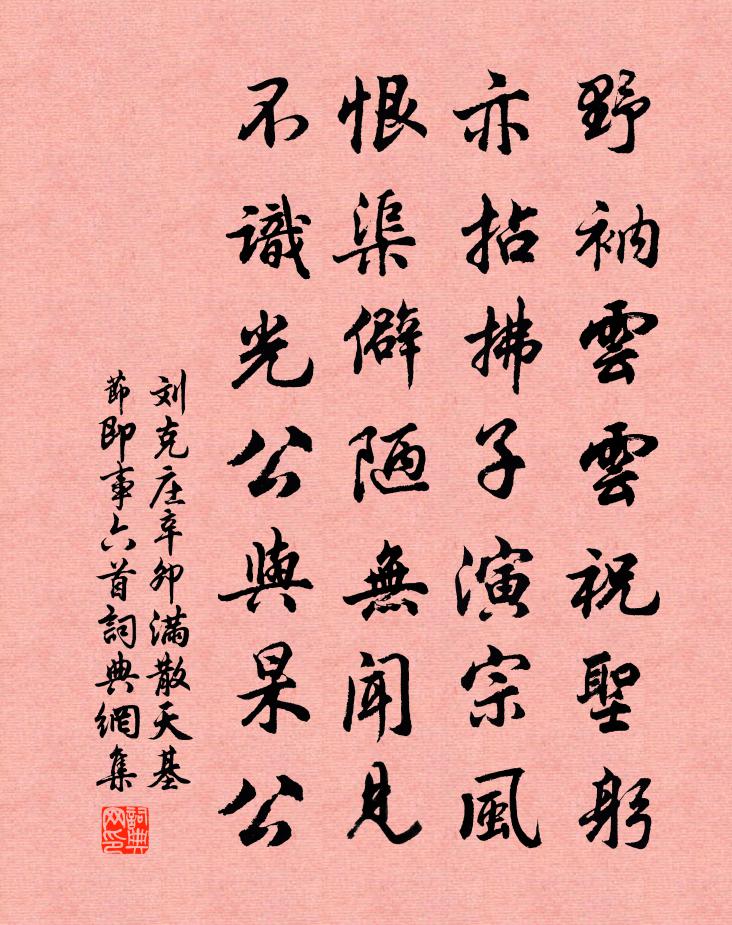 野衲雲雲祝聖躬
亦拈拂子演宗風
恨渠僻陋無聞見
不識光公與杲公
刘克庄辛卯满散天基
節即事六首詞典網集
詞典网印